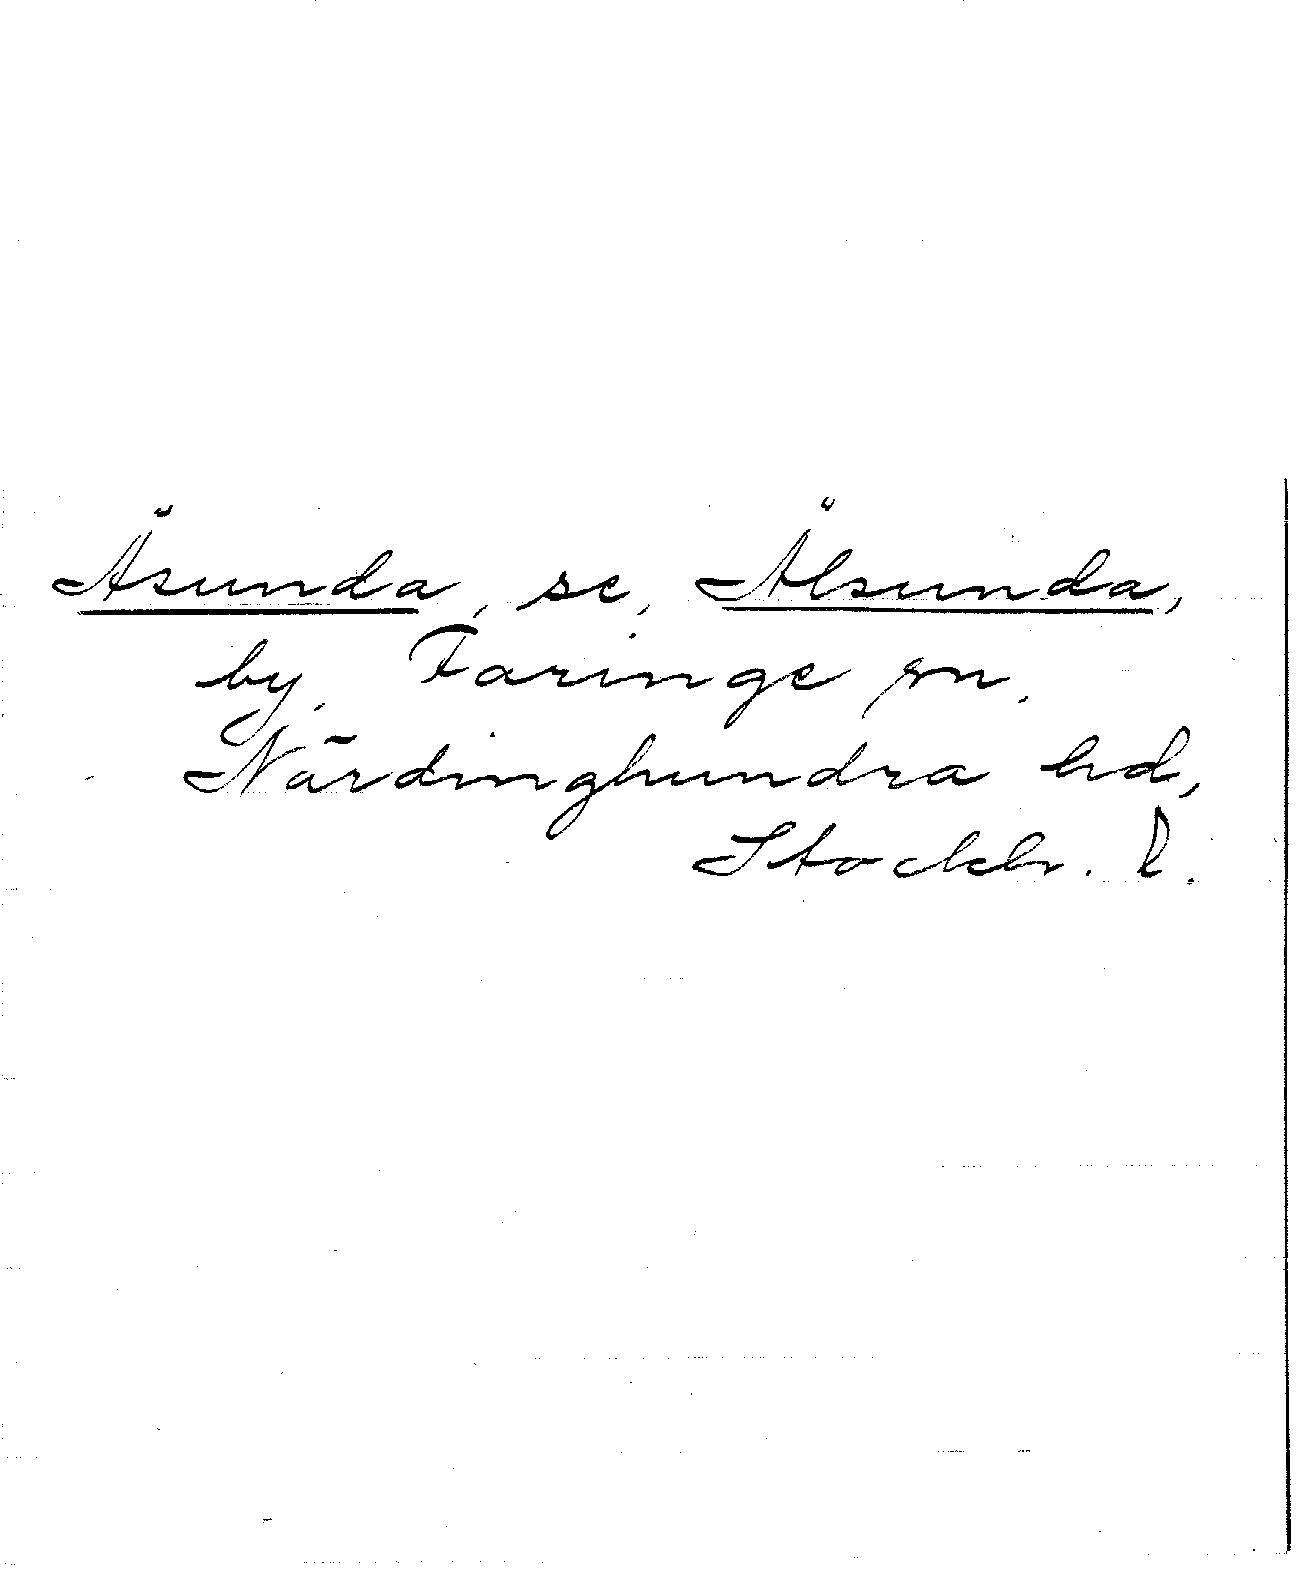 Äsunda, se, Älsunda,
by, Faringe sn.
Närdinghundra hd,
Stockh. l.